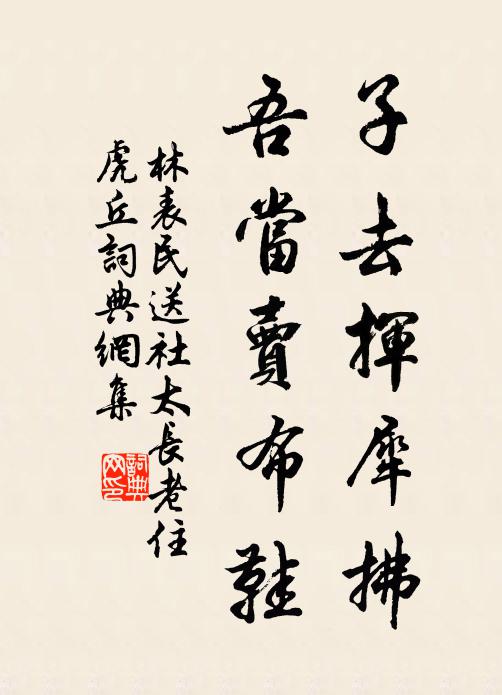 子去揮犀拂
吾當賣布鞋
林表民送社太長老住
虎丘詞典網集
詞典網印